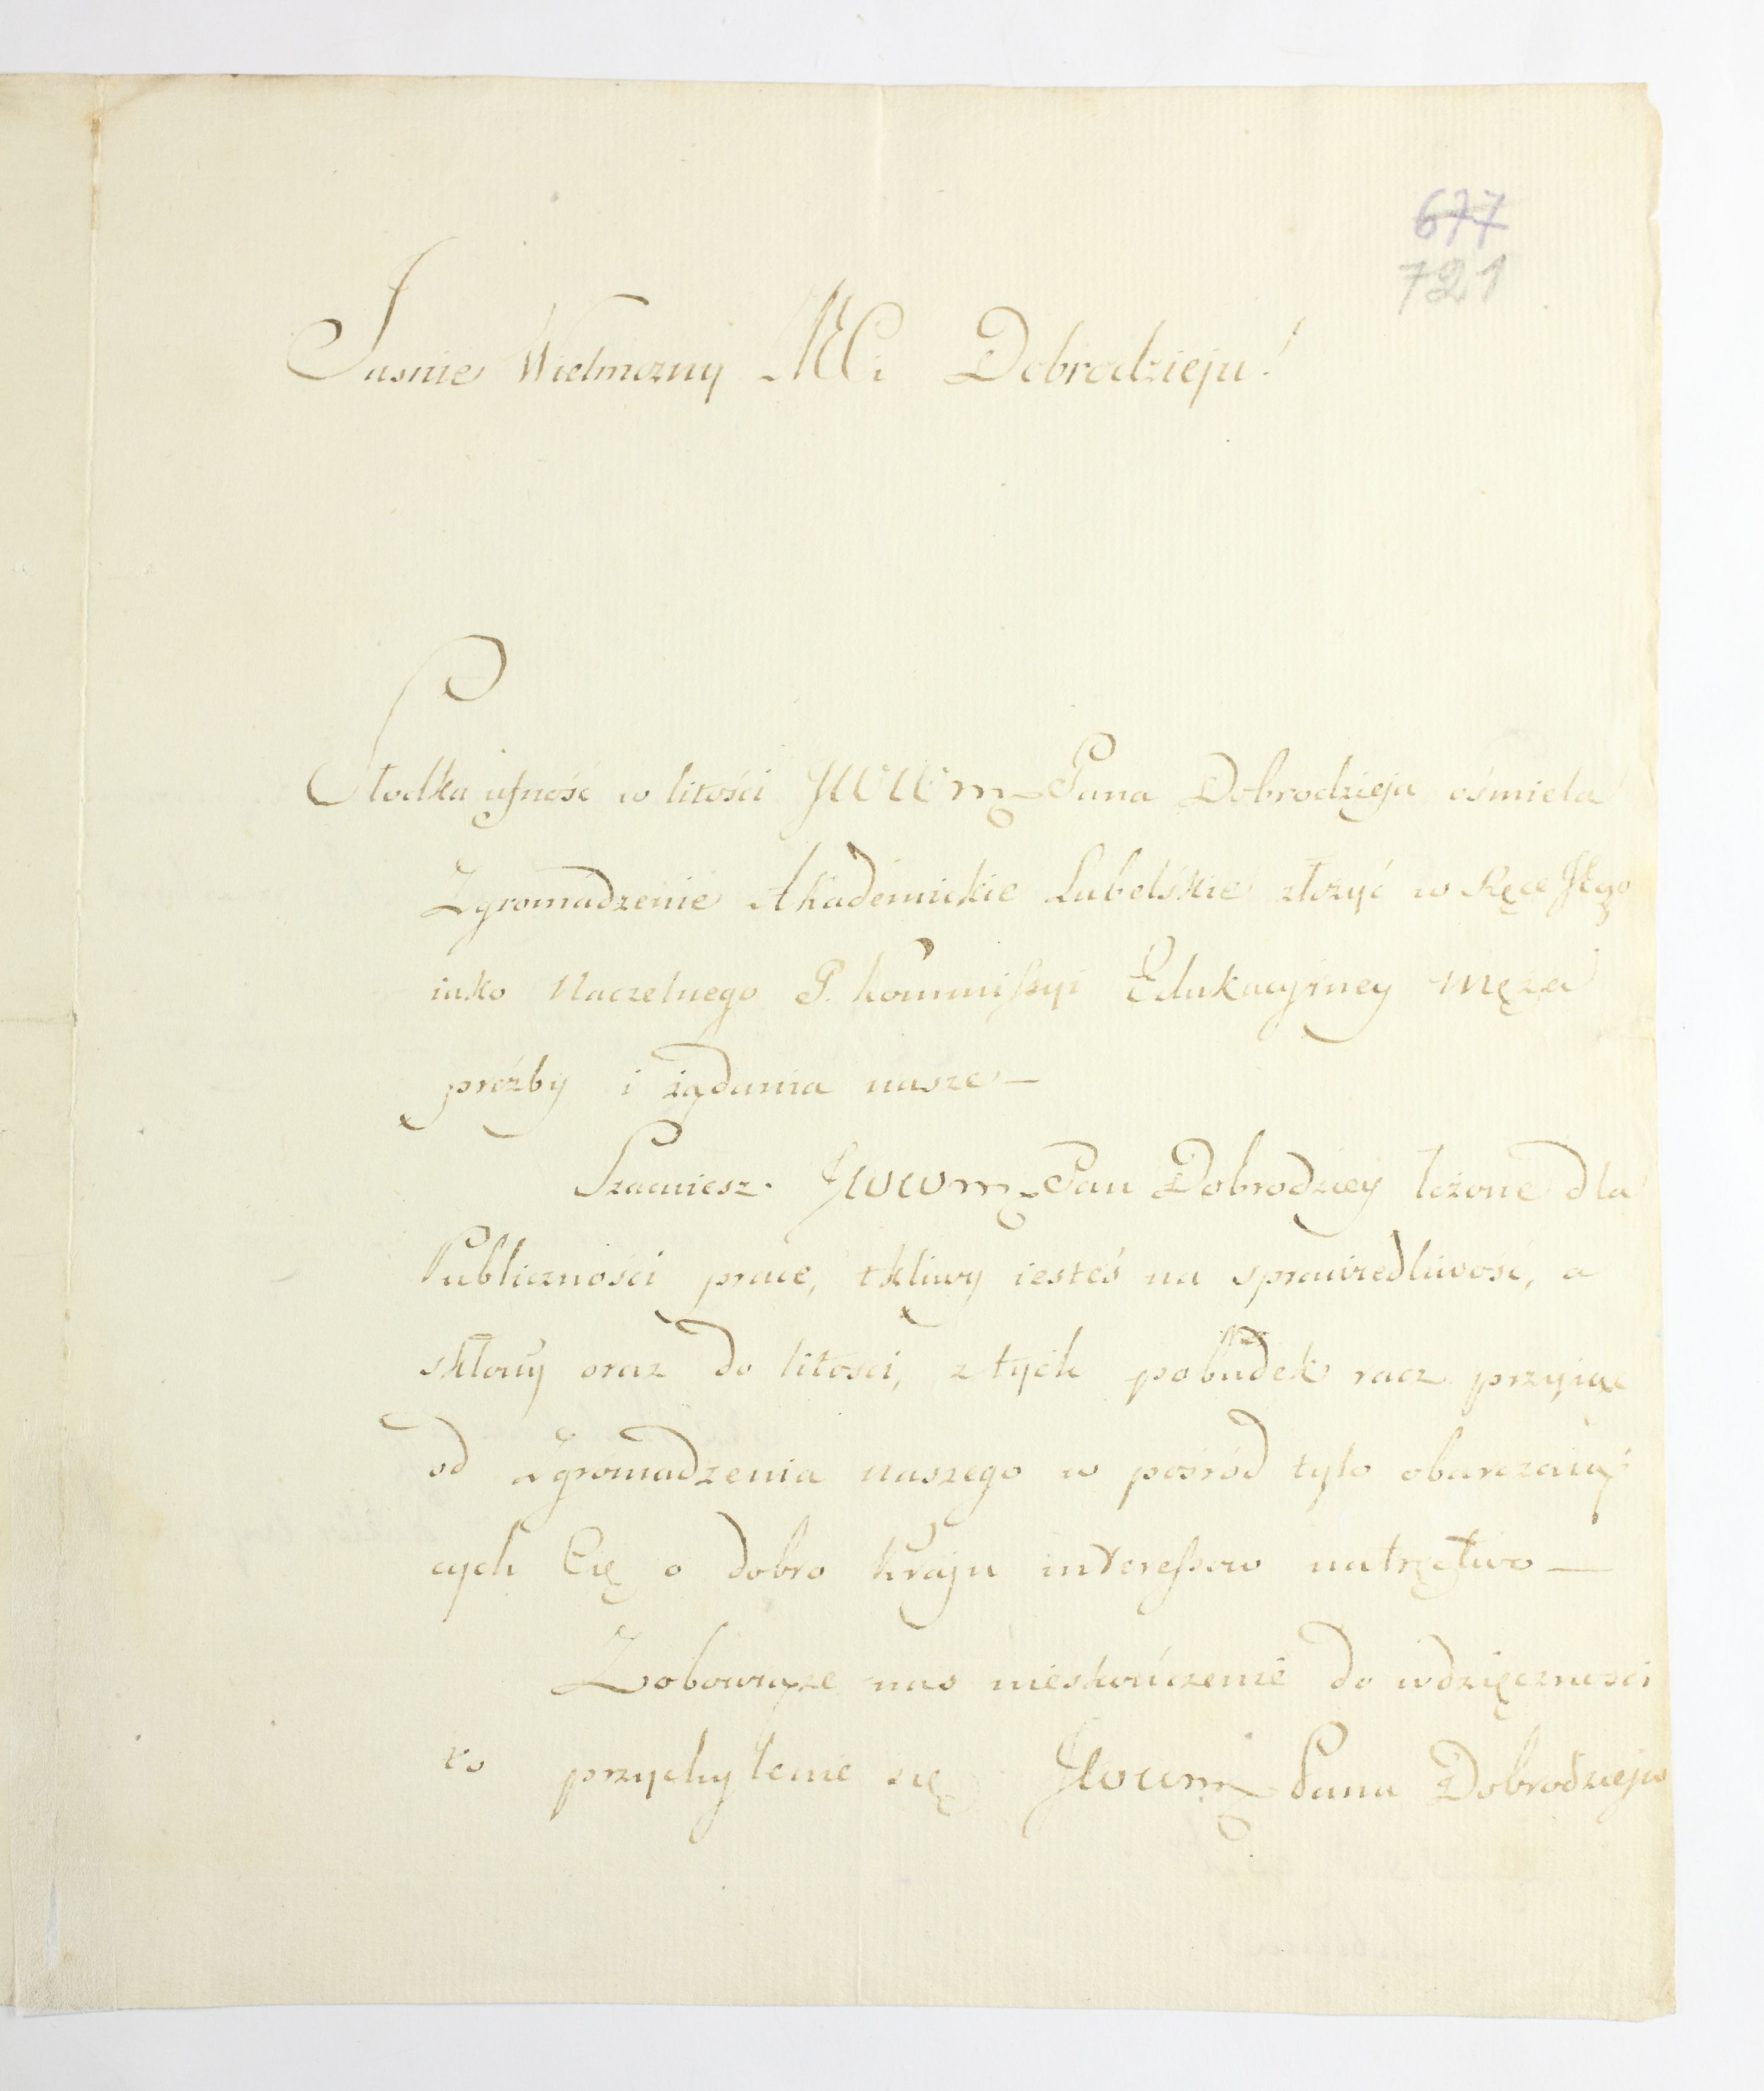 677
721
Jasnie Wielmozny MCi Dobrodzieju!
Słodka ufność w litości JWWmę Pana Dobrodzieja ośmiela
Zgromadzenie Akademickie Lubelskie złożyć w Ręce Jego
iako Naczelnego P. Kommissyi Edukacyiney Męża
prożby i żądania nasze —
Szacuiesz JWWmę Pan Dobrodziey łożone dla
Publiczności prace, tkliwy iesteś na sprawiedliwość, a
skłony oraz do litości, z tych pobudek racz przyiąć
od Zgromadzenia naszego w pośród tylo obarczaią-
cych Cię o dobro kraju interessow natręctwo —
Zobowiąże nas nieskończenie do wdzięczności
to przychylenie się JWWmę Pana Dobrodzieja